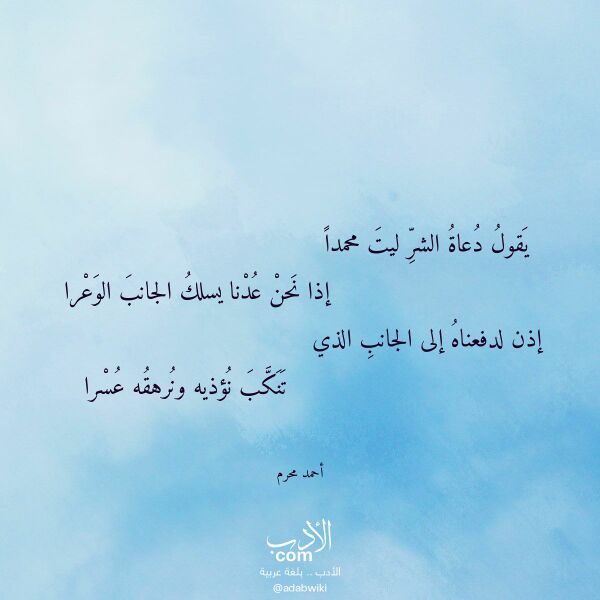 يَقولُ دُعاةُ الشرِّ ليتَ محمداً
إذا نَحنْ عُدْنا يسلكُ الجانبَ الوَعْرا
إذن لدفعناهُ إلى الجانبِ الذي
تَنَكَّبَ نُؤذيه ونُرهقُه عُسْرا
أحمد محرم
الأدب
com
الأدب .. بلغة عربية
@adabwiki